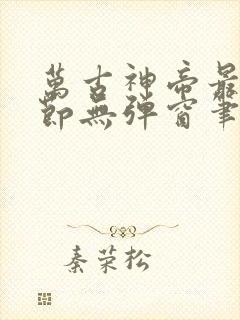 萬古神帝最
節無彈窗筆
秦荣松